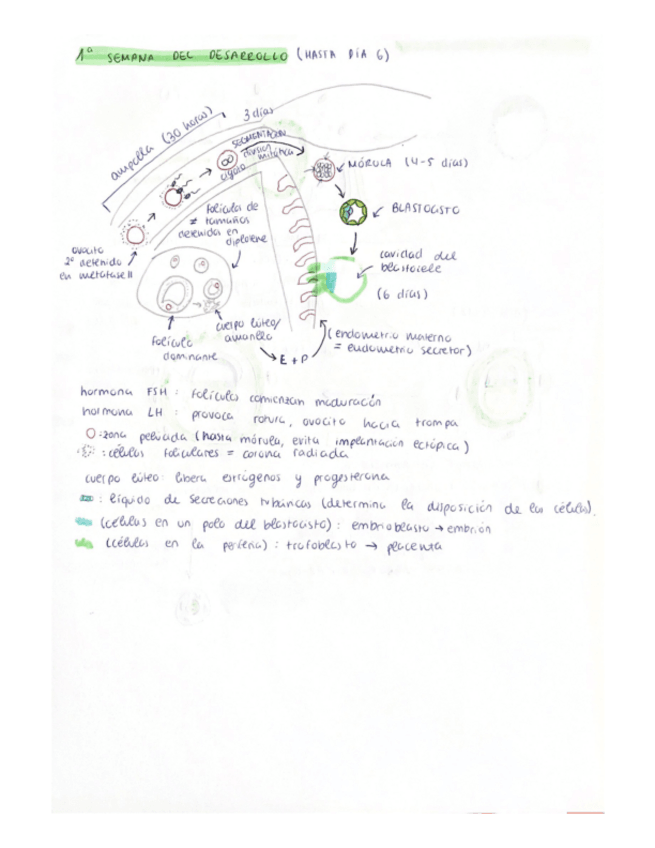 1ª SEMANA DEL DESARROLLO (HASTA DÍA 6)
ampella (30 horas)
3 días
SEGMENTACIÓN
división
mitótica
cigoto
MÓRULA (4-5 días)
BLASTOCISTO
cavidad del
blastocele
(6 días)
folículo de
≠ tamaños
detenida en
diplotene
ovocito
2º detenido
en metafase II
folículo
dominante
cuerpo lúteo/
amarillo
E + P
(endometrio materno
= endometrio secretor)
hormona FSH : folículo comienzan maduración
hormona LH : provoca rotura, ovocito hacia trompa
: zona pelúcida (hasta mórula, evita implantación ectópica)
: células foliculares = corona radiada
cuerpo lúteo: libera estrógenos y progesterona
: líquido de secreciones tubáricas (determina la disposición de las células).
(células en un polo del blastocisto) : embrioblasto → embrión
(células en la periferia) : trofoblasto → placenta